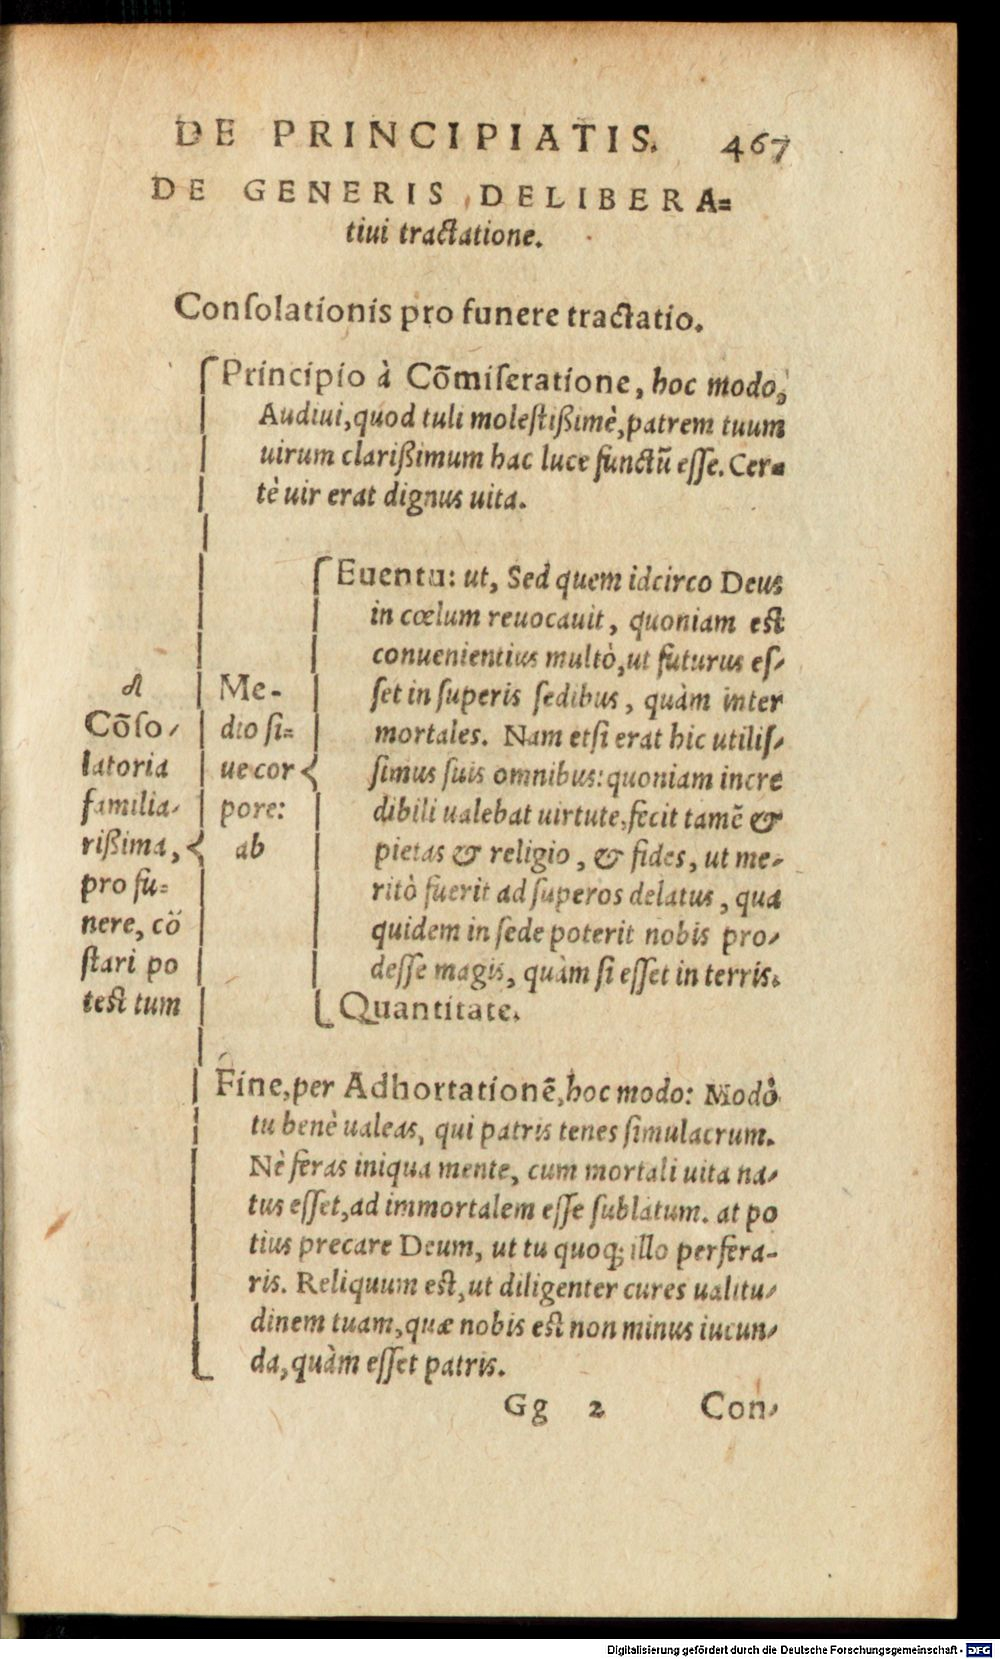 DE PRINCIPIATIS. 467
DE GENERIS DELIBERA=
tiui tractatione.
Conſolationis pro funere tractatio.
Principio à Cõmiſeratione, hoc modo,
Audiui, quod tuli moleſtißimè, patrem tuum
uirum clarißimum hac luce functũ eſſe. Cer=
tè uir erat dignus uita.
A
Cõſo-
latoria
familia-
rißima,
pro fu=
nere, cõ
ſtari po
test tum
Me-
dio ſi=
ue cor
pore:
ab
Euentu: ut, Sed quem idcirco Deus
in cœlum reuocauit, quoniam est
conuenientius multò, ut futurus eſ-
ſet in ſuperis ſedibus, quàm inter
mortales. Nam etſi erat hic utiliſ-
ſimus ſuis omnibus: quoniam incre
dibili ualebat uirtute, fecit tamẽ &
pietas & religio, & fides, ut me-
ritò fuerit ad ſuperos delatus, qua
quidem in ſede poterit nobis pro-
deſſe magis, quàm ſi eſſet in terris.
Quantitate.
Fine, per Adhortationẽ, hoc modo: Modò
tu benè ualeas, qui patris tenes ſimulacrum.
Nè feras iniqua mente, cum mortali uita na-
tus eſſet, ad immortalem eſſe ſublatum. at po
tius precare Deum, ut tu quoq; illo perfera-
ris. Reliquum est, ut diligenter cures ualitu-
dinem tuam, quæ nobis est non minus iucun-
da, quàm eſſet patris.
Gg 2 Con-
Digitalisierung gefördert durch die Deutsche Forschungsgemeinschaft - DFG